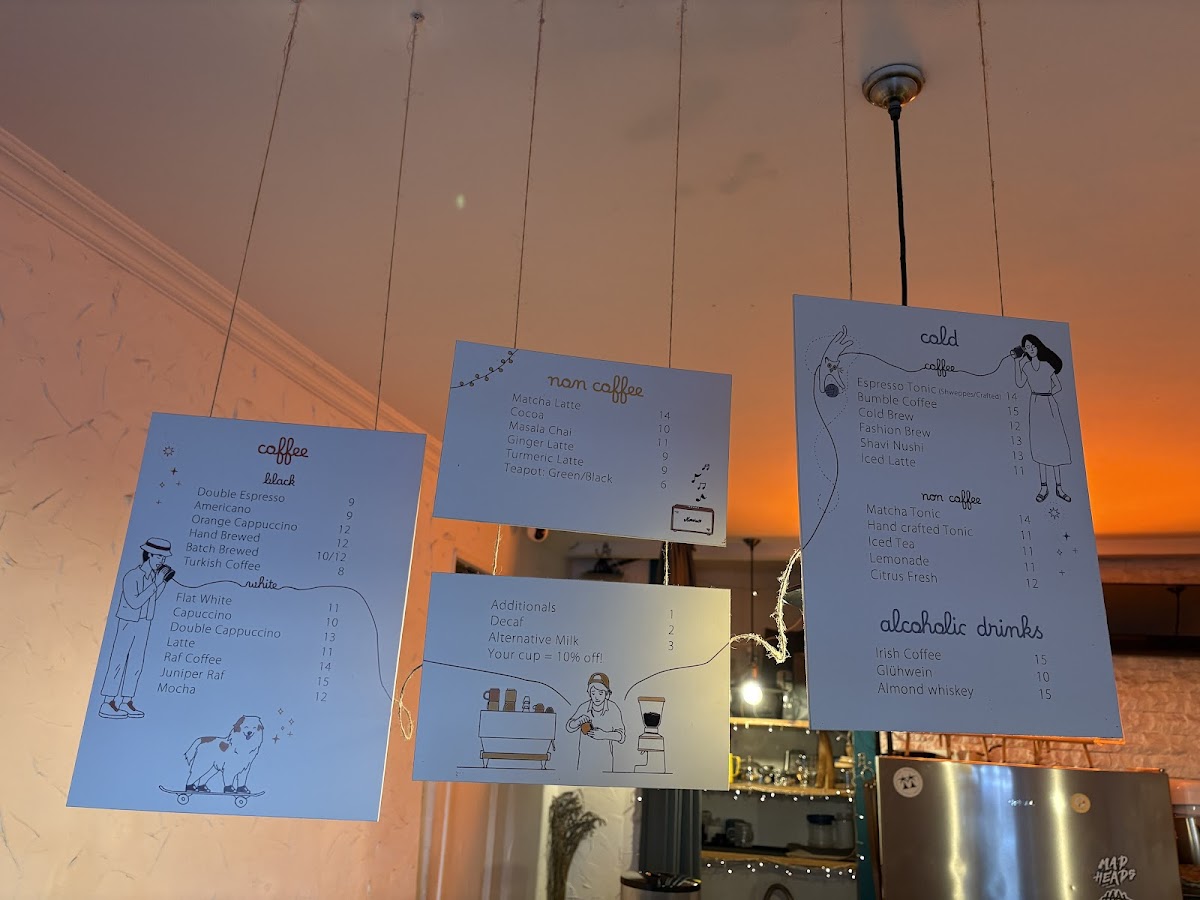 coffee
black
Double Espresso 9
Americano 9
Orange Cappuccino 12
Hand Brewed 12
Batch Brewed 10/12
Turkish Coffee 8
white
Flat White 11
Capuccino 10
Double Cappuccino 13
Latte 11
Raf Coffee 14
Juniper Raf 15
Mocha 12
non coffee
Matcha Latte 14
Cocoa 10
Masala Chai 11
Ginger Latte 9
Turmeric Latte 9
Teapot: Green/Black 6
Additionals 1
Decaf 2
Alternative Milk 3
Your cup = 10% off!
cold
coffee
Espresso Tonic (Shweppes/Crafted) 14
Bumble Coffee 15
Cold Brew 12
Fashion Brew 13
Shavi Nushi 13
Iced Latte 11
non coffee
Matcha Tonic 14
Hand crafted Tonic 11
Iced Tea 11
Lemonade 11
Citrus Fresh 12
alcoholic drinks
Irish Coffee 15
Glühwein 10
Almond whiskey 15
MAD
HEADS